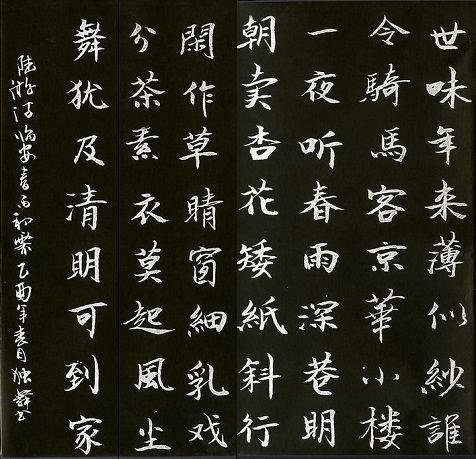 世味年来薄似紗誰
令騎馬客京華小楼
一夜听春雨深巷明
朝卖杏花矮紙斜行
閑作草晴窗細乳戏
分茶素衣莫起風尘
舞犹及清明可到家
陆游诗临安春雨初霽乙酉年春月独舞书